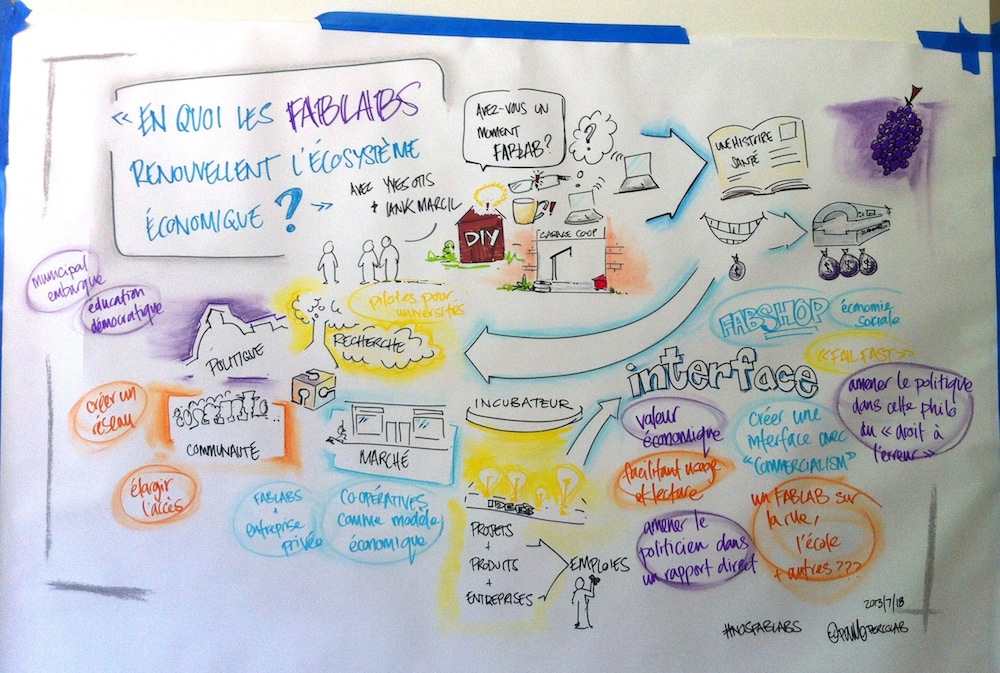 « EN QUOI LES FABLABS
RENOUVELLENT L'ÉCOSYSTÈME
ÉCONOMIQUE ? »
AVEC YVES OTIS
+ IANIK MARCIL
AVEZ-VOUS UN
MOMENT
FABLAB?
?
DIY
GARAGE COOP
UNE HISTOIRE
SANTÉ
$
$ $ $
municipal
embarque
éducation
démocratique
POLITIQUE
pilotes pour
universités
RECHERCHE
créer un
réseau
COMMUNAUTÉ
élargir
l'accès
MARCHÉ
FABLABS
+
entreprise
privée
COOPÉRATIVES
comme modèle
économique
INCUBATEUR
IDÉES
PROJETS
+
PRODUITS
+
ENTREPRISES
EMPLOIES
FABSHOP
économie
sociale
« FAIL FAST »
interface
valeur
économique
facilitant usage
et lecture
amener le
politicien dans
un rapport direct
créer une
interface avec
"COMMERCIALISM"
amener le politique
dans cette philo
du « droit à
l'erreur »
un FABLAB sur
la rue,
l'école
+ autres ???
2013/7/18
#NOSFABLABS